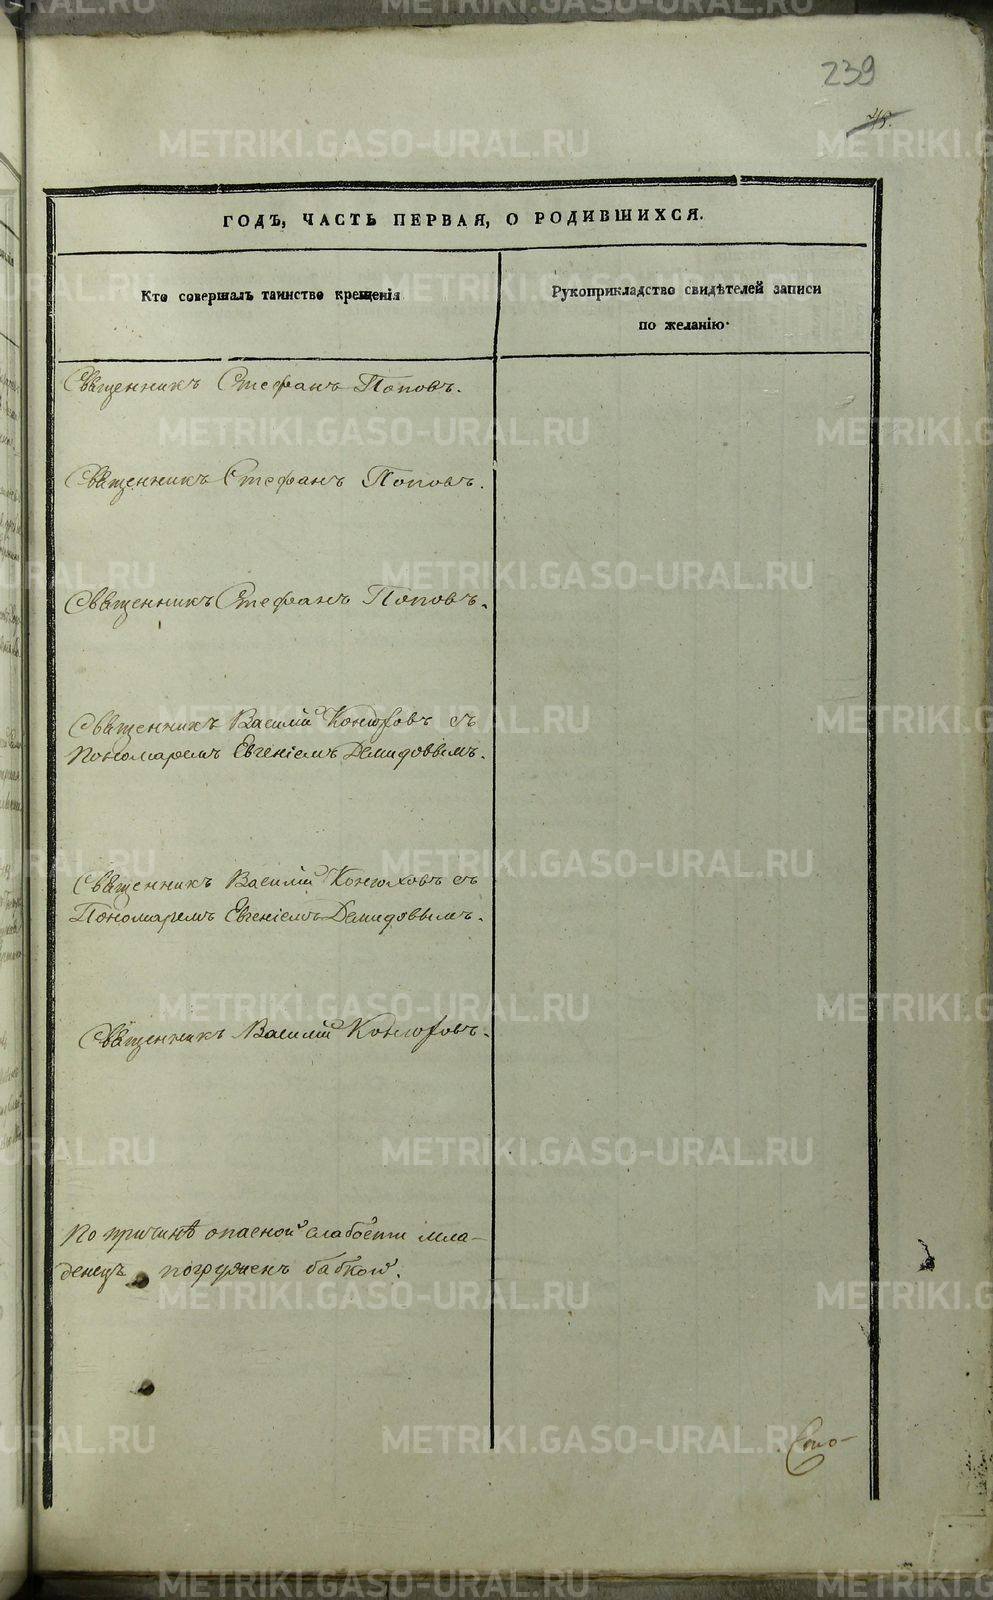 239
ГОДЪ, ЧАСТЬ ПЕРВАЯ, О РОДИВШИХСЯ.
Кто совершалъ таинство крещенія
Рукоприкладство свидѣтелей записи
по желанію.
Священникъ Стефанъ Поповъ.
Священникъ Стефанъ Поповъ.
Священникъ Стефанъ Поповъ.
Священникъ Василій Конюховъ съ
Пономаремъ Евгеніемъ Демидовымъ.
Священникъ Василій Конюховъ съ
Пономаремъ Евгеніемъ Демидовымъ.
Священникъ Василій Конюховъ.
По причинѣ опасной слабости мла-
денецъ погруженъ бабкой.
METRIKI.GASO-URAL.RU